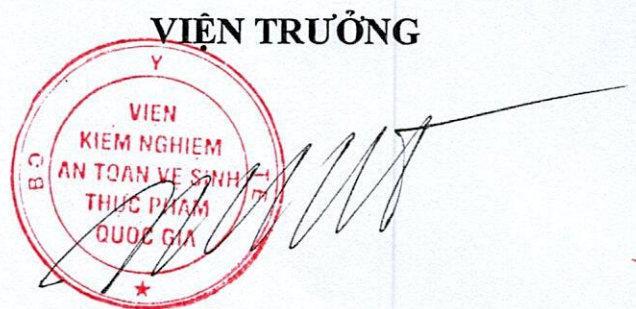 VIỆN TRƯỞNG
BỘ Y TẾ
VIEN
KIEM NGHIEM
AN TOAN VE SINH
THUC PHAM
QUOC GIA